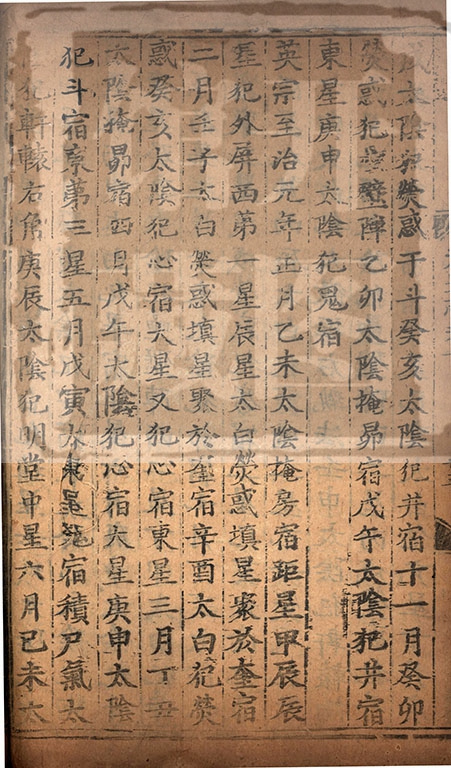 太陰犯熒惑于斗癸亥太陰犯井宿十一月癸卯
熒惑犯壘壁陣乙卯太陰掩昴宿戊午太陰犯井宿
東星庚申太陰犯鬼宿
英宗至治元年正月乙未太陰掩房宿距星甲辰辰
星犯外屏西第一星辰星太白熒惑填星聚於奎宿
二月壬子太白熒惑填星聚於奎宿辛酉太白犯熒
惑癸亥太陰犯心宿大星又犯心宿東星三月丁丑
太陰掩昴宿四月戊午太陰犯心宿大星庚申太陰
犯斗宿東第三星五月戊寅太東星鬼宿積尸氣太
犯軒轅右角庚辰太陰犯明堂中星六月己未太